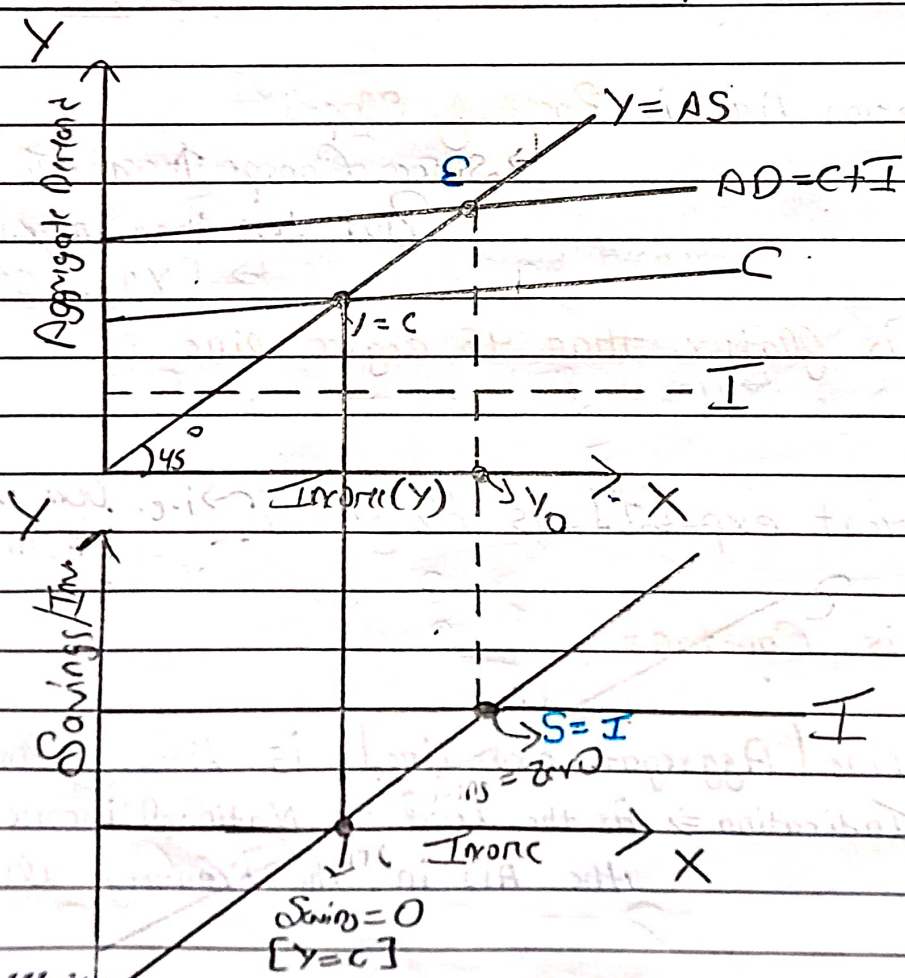 Y
Aggrigate Demand
Y = AS
E
AD = C+I
C
Y = C
I
45°
Income(Y)
Y₀
X
Y
Savings/Inv.
I
S = I
= Zero
Income
X
Saving = 0
[Y = C]